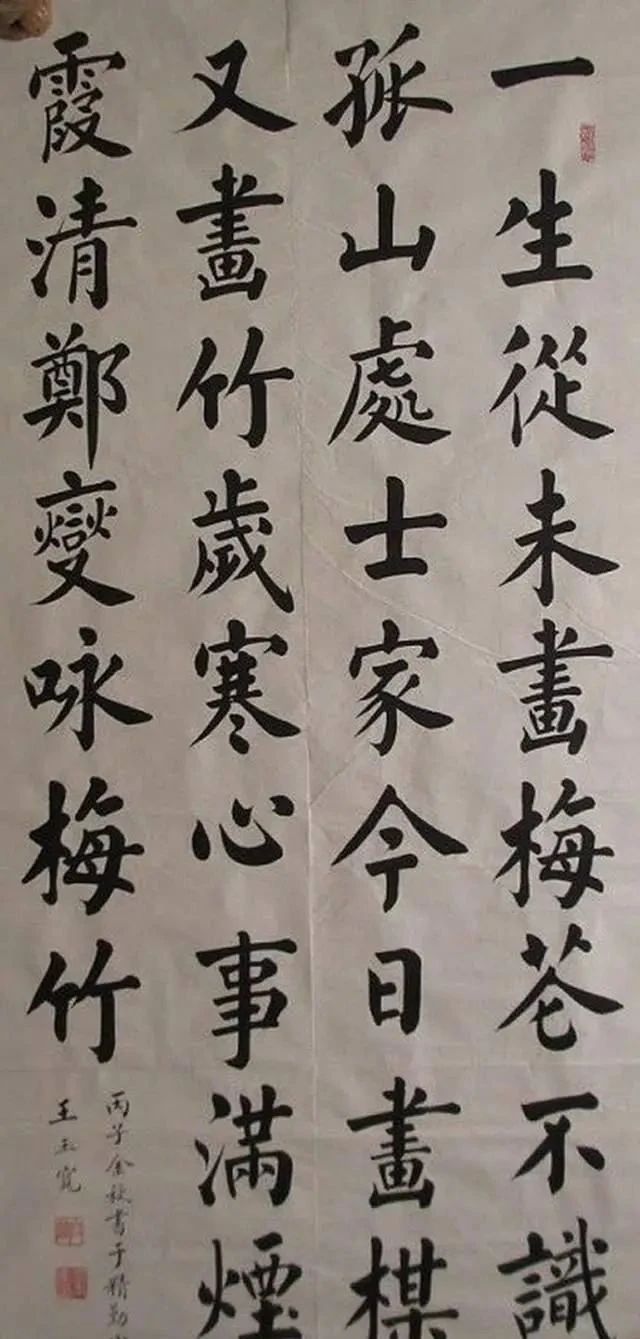 一生從未畫梅花不識
孤山處士家今日畫楳
又畫竹歲寒心事滿煙
霞清鄭燮咏梅竹
丙子金秋書于精勤
王玉寬